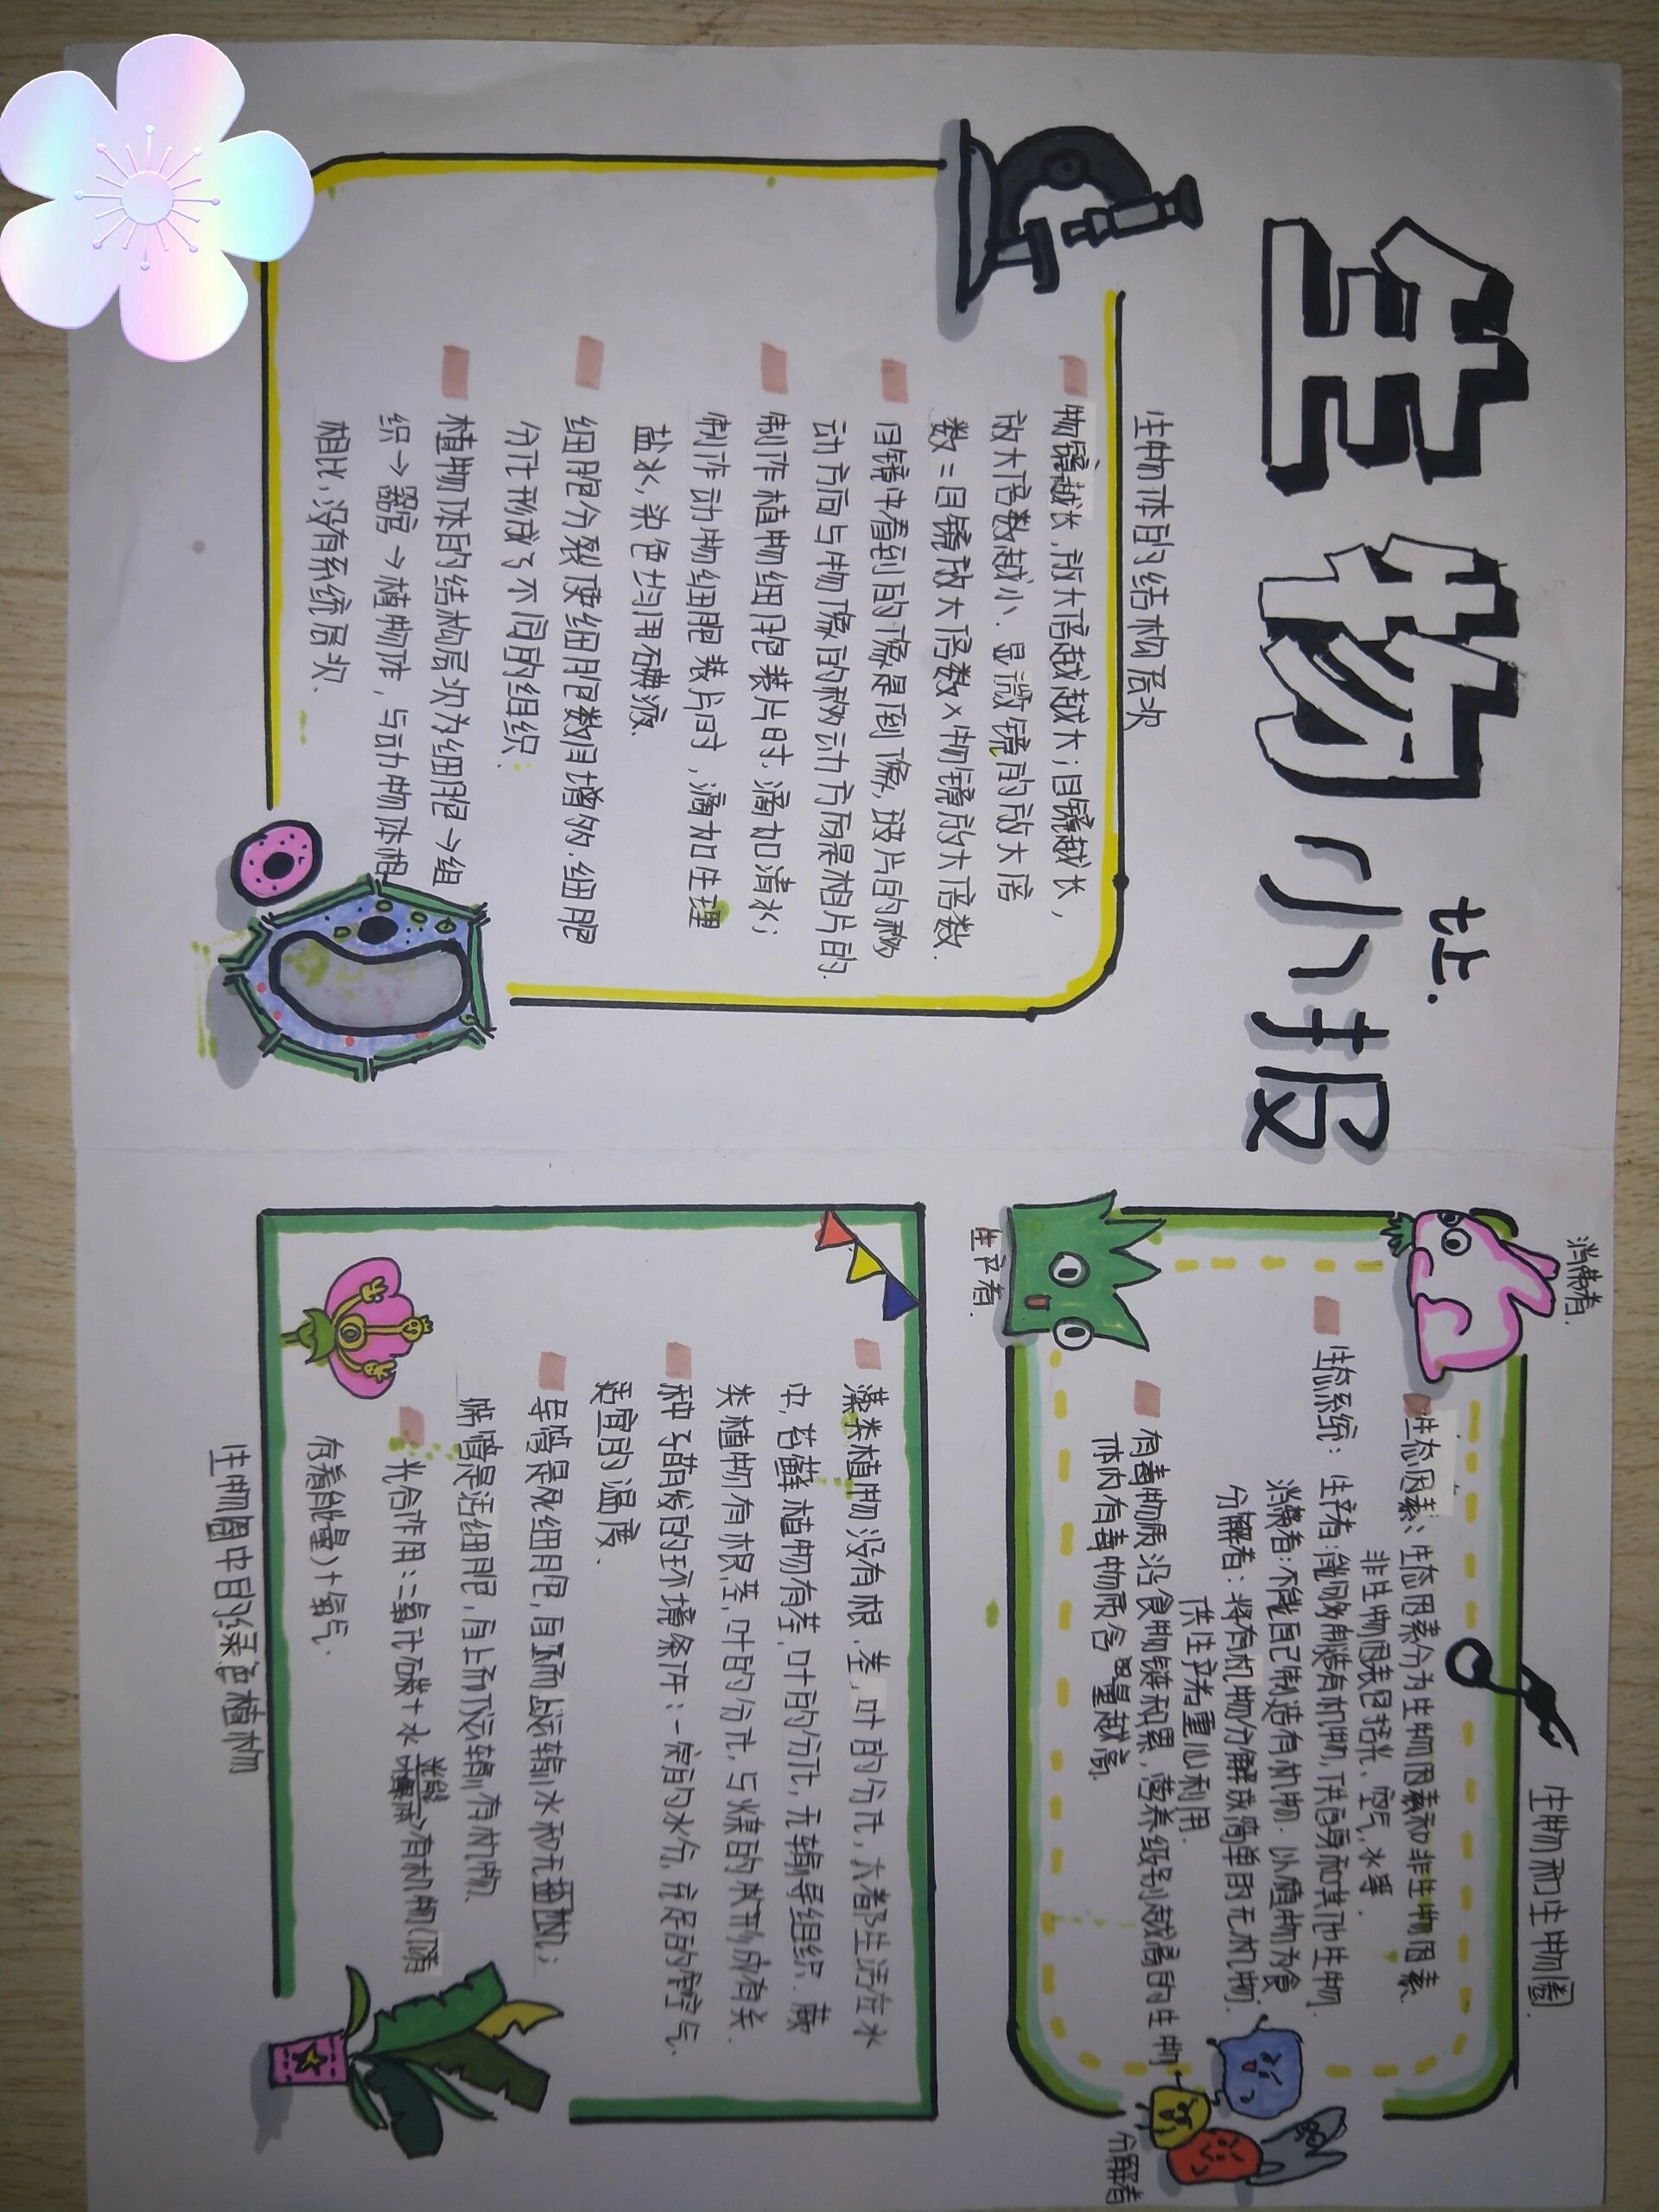 生物小报
七上.
生物体的结构层次
物镜越长,放大倍越越大;目镜越长,
放大倍数越小.显微镜的放大倍
数=目镜放大倍数×物镜放大倍数.
目镜中看到的像是倒像,玻片的移
动方向与物像的移动方向是相片的.
制作植物细胞装片时,滴加清水;
制作动物细胞装片时,滴加生理
盐水,染色均用碘液.
细胞分裂使细胞数目增多.细胞
分化形成了不同的组织.
植物体的结构层次为细胞→组
织→器官→植物体,与动物体相
相比,没有系统层次.
消费者.
生物和生物圈.
生态因素:生态因素分为生物因素和非生物因素.
非生物因素包括光、空气,水等.
生态系统:生产者:能够制造有机物,供自身和其他生物.
消费者:不能自己制造有机物.以植物为食
分解者:将有机物分解成简单的无机物.
供生产者重心利用.
有毒物质沿食物链积累,营养级别越高的生物
体内有毒物质含量越高.
生产者.
分解者
藻类植物没有根、茎,叶的分化,大都生活在水
中,苔藓植物有茎,叶的分化,无输导组织.蕨
类植物有根,茎,叶的分化,与煤的形成有关.
种子萌发的环境条件:一定的水分,充足的空气.
适宜的温度、
导管是死细胞,自下而上运输水和无机盐;
筛管是活细胞,自上而下运输有机物.
光合作用:二氧化碳+水 光能 叶绿体 →有机物(储
有着能量)+氧气.
生物圈中的绿色植物